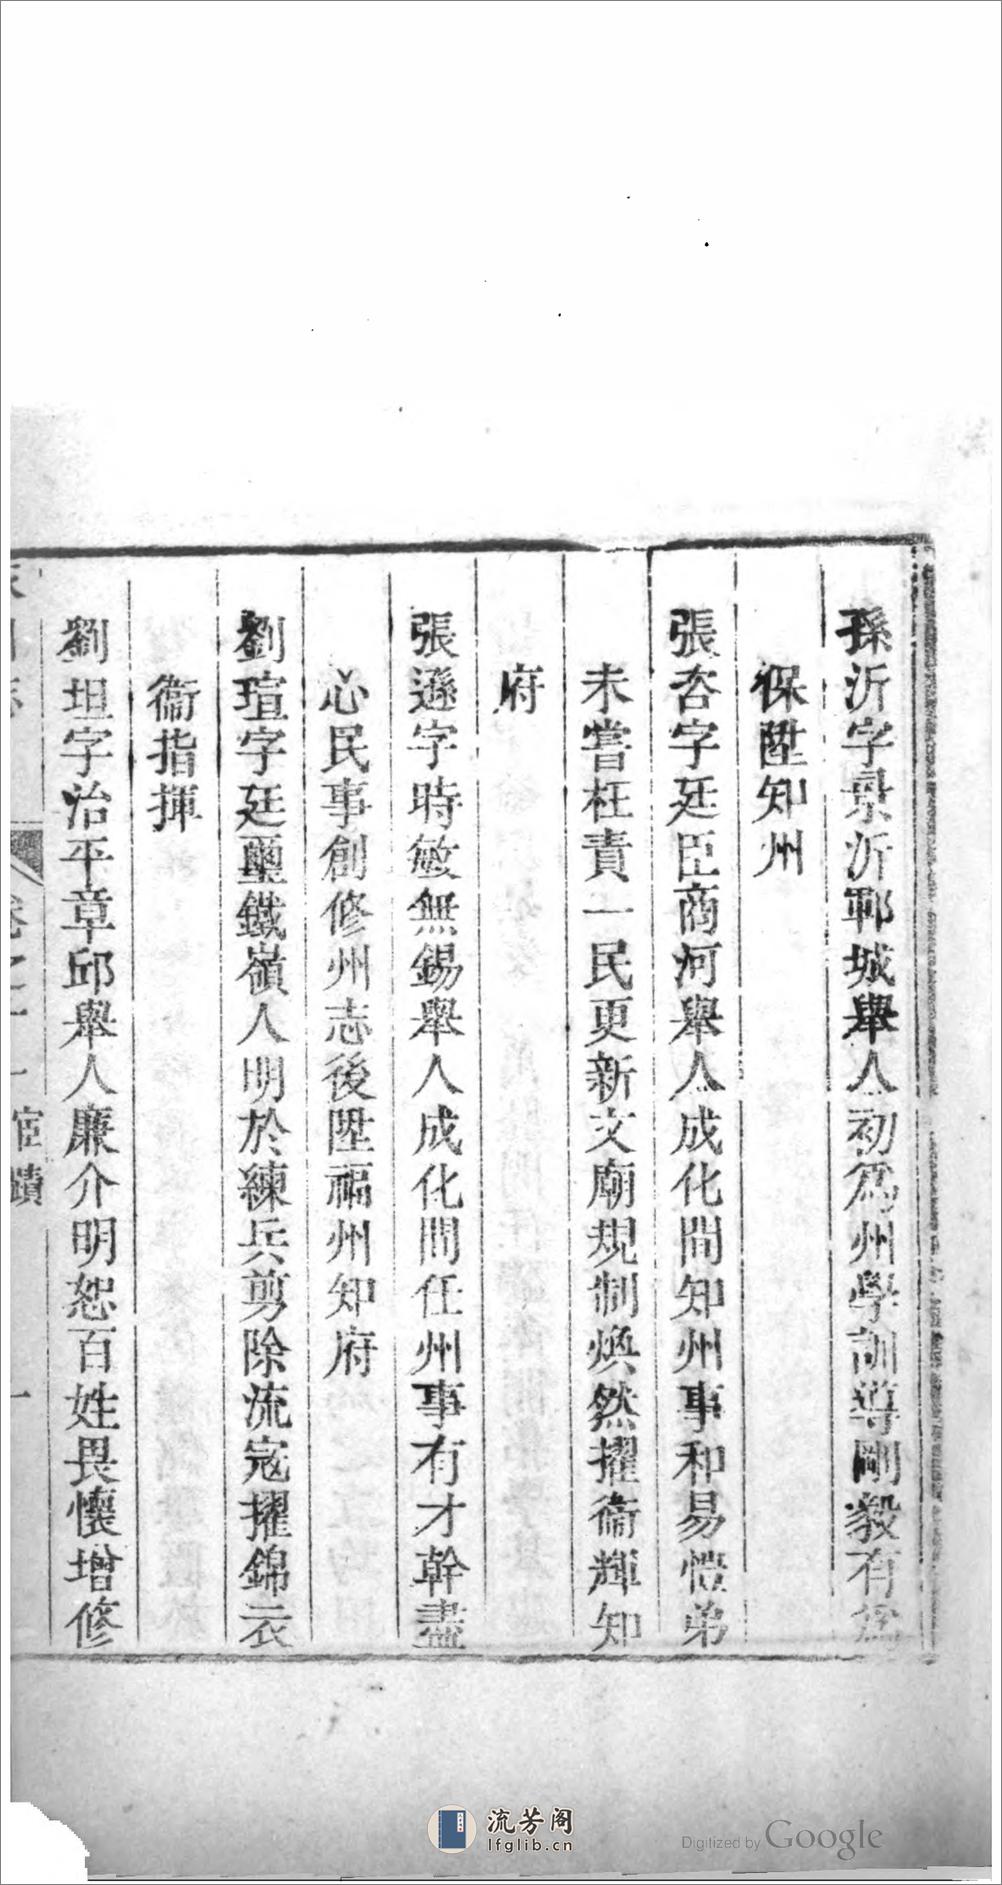 孫沂字景沂鄆城舉人初爲州學訓導剛毅有爲
保陞知州
張吝字廷臣商河舉人成化間知州事和易愷弟
未嘗枉責一民更新文廟規制煥然擢衞輝知
府
張遜字時敏無錫舉人成化間任州事有才幹盡
心民事創修州志後陞福州知府
劉瑄字廷璽鐵嶺人明於練兵剪除流寇擢錦衣
衞指揮
劉坦字治平章邱舉人廉介明恕百姓畏懷增修
宦蹟
流芳阁
lfglib.cn
Digitized by Google